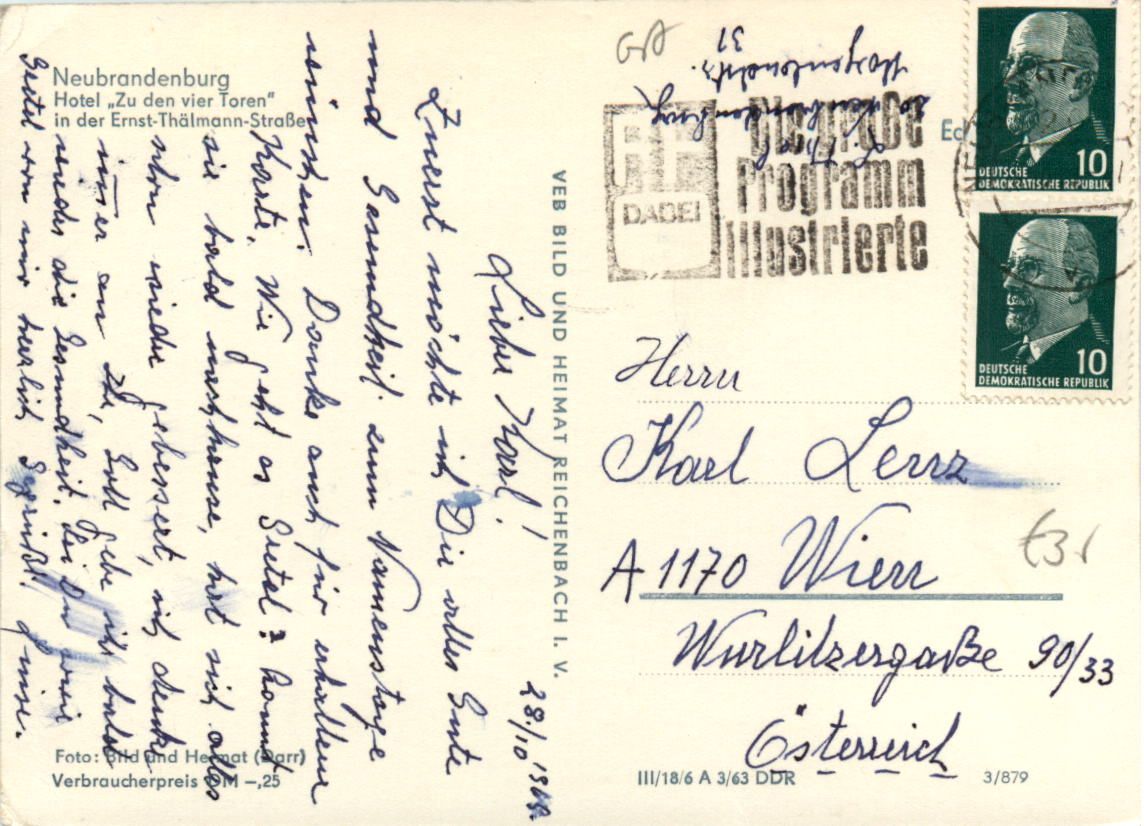 Neubrandenburg
Hotel „Zu den vier Toren“
in der Ernst-Thälmann-Straße
28./10
Lieber Karl!
Zuerst möchte ich Dir alles Gute
und Gesundheit zum Namenstage
wünschen. Danke auch für erhaltene
Karte. Wie geht es Gretel? kommt
sie bald nach hause, hat sich alles
schon wieder gebessert, ich denke
immer an Sie, Gott gebe ihr bald
wieder die Gesundheit. Sei Du wie
Gretel von mir herzlich gegrüßt
Foto: Bild und Heimat (Darr)
Verbraucherpreis DM –,25
VEB BILD UND HEIMAT REICHENBACH I. V.
Neubrandenburg
31
DADEI
Die große
Programm
Illustrierte
10
DEUTSCHE
DEMOKRATISCHE REPUBLIK
10
DEUTSCHE
DEMOKRATISCHE REPUBLIK
Herrn
Karl Lenz
A 1170 Wien
Wurlitzergaße 90/33
Österreich
III/18/6 A 3/63 DDR
3/879